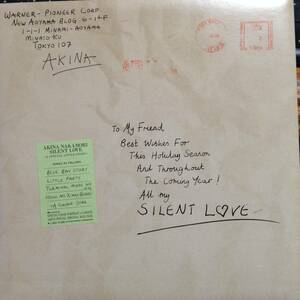 WARNER-PIONEER CORP
NEW AOYAMA BLDG. 6-14F
1-1-1 MINAMI-AOYAMA
MINATO-KU
TOKYO 107
AKINA
To My Friend
Best Wishes For
This Holiday Season
And Throughout
The Coming Year!
All my
SILENT LOVE
AKINA NAKAMORI
SILENT LOVE
BLUE BAY STORY
LITTLE PARTY